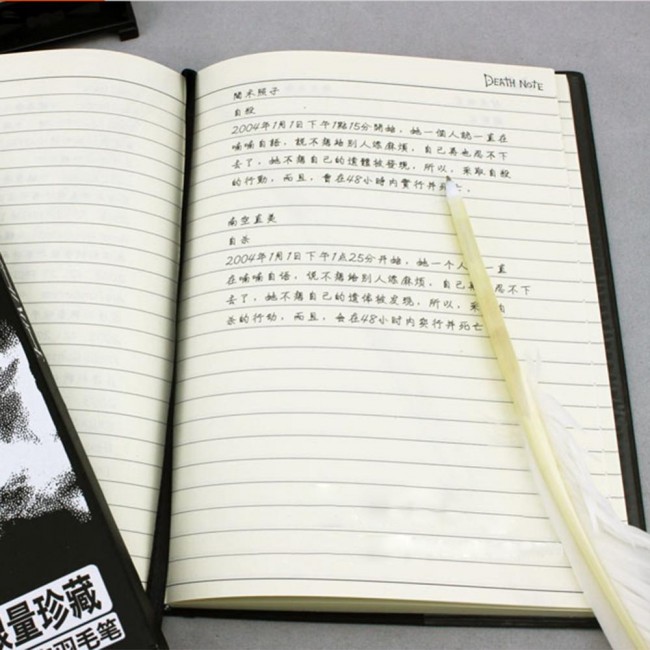 DEATH NOTE
間木照子
自殺
2004年1月1日下午1點15分開始，她一個人就一直在
喃喃自語，說不想給別人添麻煩，自己再也忍不下
去了，她不想自己的遺體被發現，所以，采取自殺
的行動，而且，會在48小時內實行并死亡。
南空直美
自杀
2004年1月1日下午1点25分开始，她一个人一直
在喃喃自语，说不想给别人添麻烦，自己再忍不下
去了，她不想自己的遗体被发现，所以，采自
杀的行动，而且，会在48小时内实行并死亡
量珍藏
羽毛笔